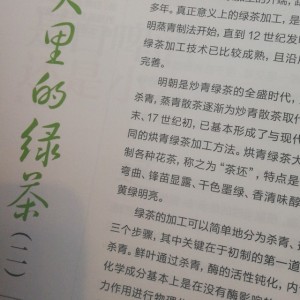 里的绿茶(二)
多年。真正意义上的绿茶加工，是
明蒸青制法开始，直到12世纪发
绿茶加工技术已比较成熟，且沿
完善。
明朝是炒青绿茶的全盛时代，
杀青，蒸青散茶逐渐为炒青散茶取代
末、17世纪初，已基本形成了与现代
同的烘青绿茶加工方法。烘青绿茶大
制各种花茶，称之为“茶坯”，特点是
弯曲、锋苗显露、干色墨绿、香清味醇
黄绿明亮。
绿茶的加工可以简单地分为杀青、
三个步骤，其中关键在于初制的第一道
杀青。鲜叶通过杀青，酶的活性钝化，内
化学成分基本上是在没有酶影
力作用进行物理